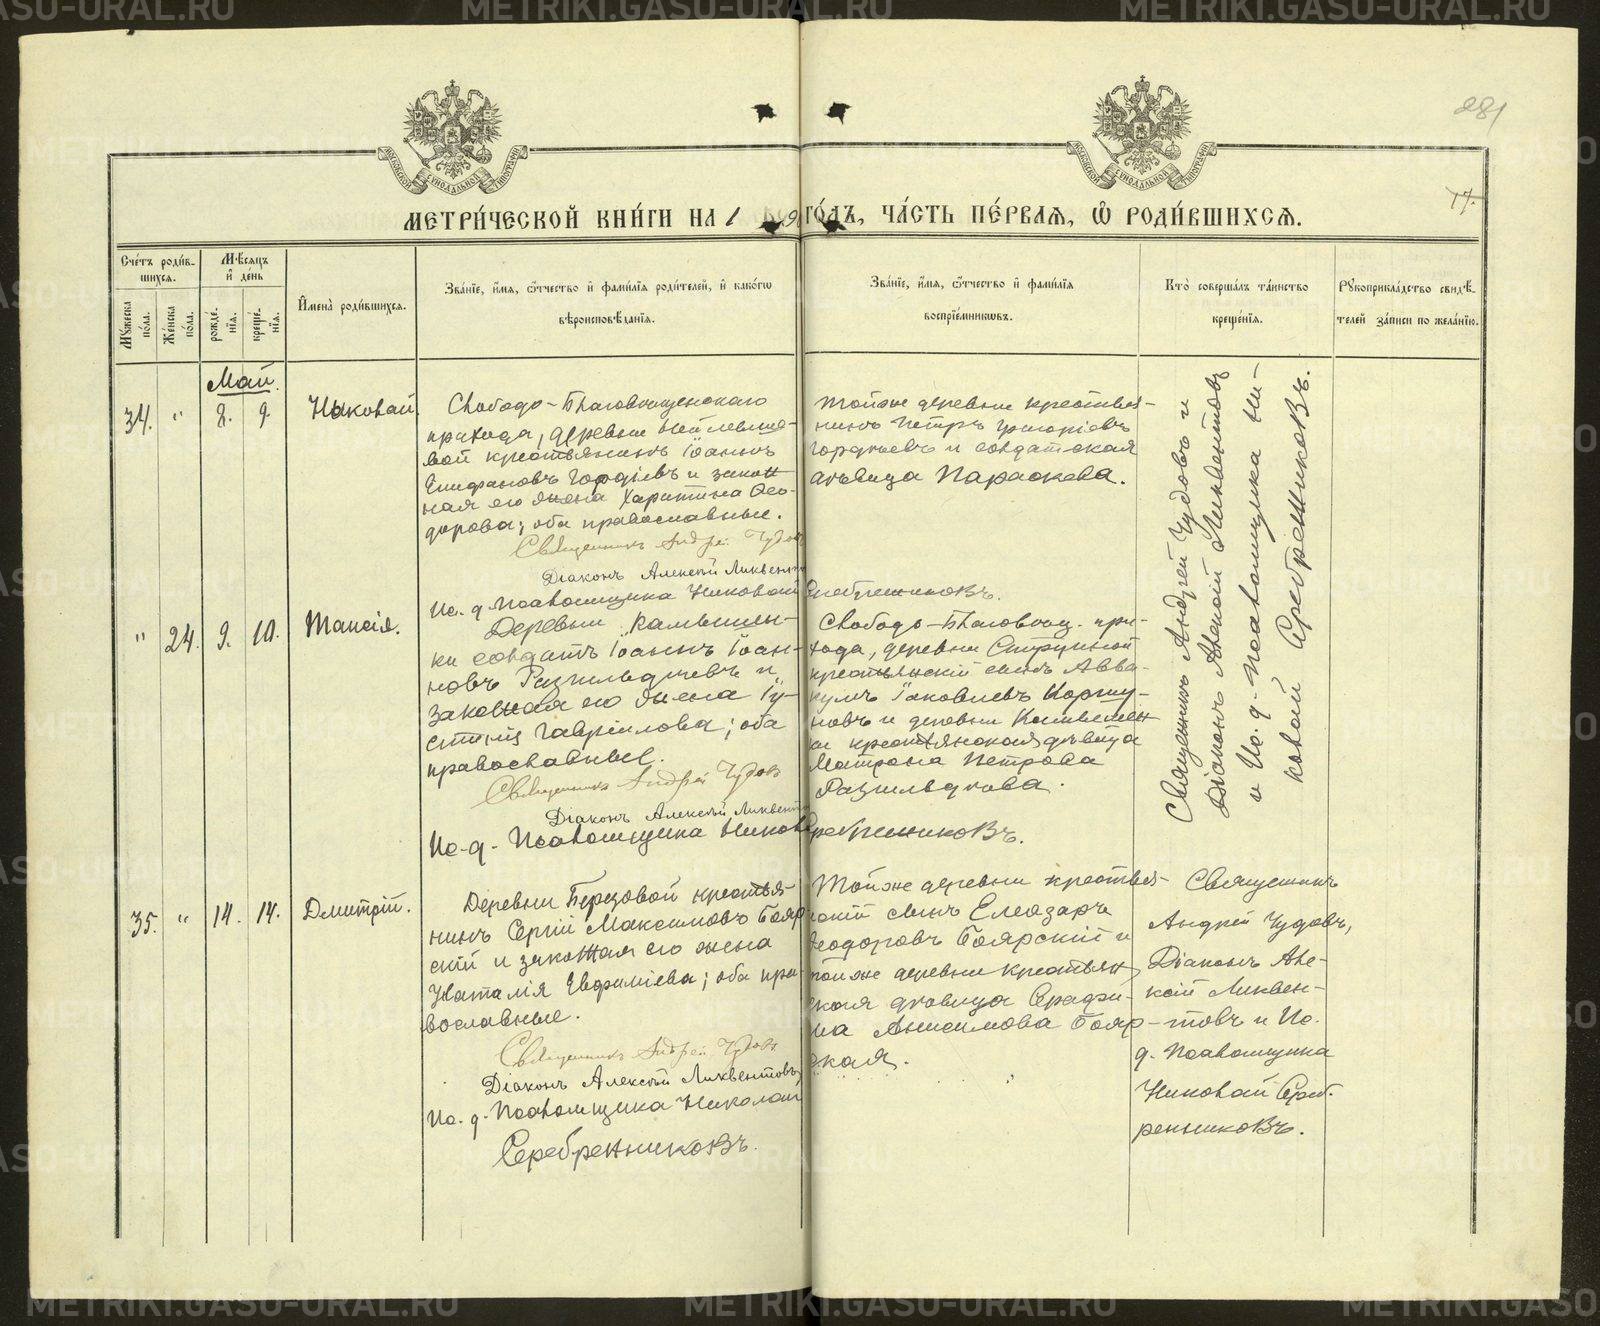 METRIKI.GASU-URAL.RU
281
17.
МЕТРИ́ЧЕСКОЙ КНИ́ГИ НА 1 9 ГО́ДЪ, ЧА́СТЬ ПЕ́РВАЯ, Ѿ РОДИ́ВШИХСЯ.
Сче́тъ роди́в-
шихся.
Мѣ́сяцъ
и҆ де́нь
Мꙋжеска по́ла.
Же́нска по́ла.
рожде́-
нїя.
креще́-
нїя.
И҆мена̀ роди́вшихся.
Зва́нїе, и҆́мя, ѻ҆́тчество и҆ фами́лїя роди́телей, и҆ како́гѡ
вѣроисповѣ́данїя.
Зва́нїе, и҆́мя, ѻ҆́тчество и҆ фами́лїя
воспрїе́мникωвъ.
Кто̀ соверша́лъ та́инство
креще́нїя.
Рꙋкоприкла́дство свидѣ́-
телей за́писи по жела́нїю.
Май.
34. " 8. 9. Николай
Свободо-Благовѣщенскаго
прихода, деревни
вой крестьянинъ Іоаннъ
Епифановъ Гордѣевъ и закон
ная его жена Харитина Ѳео-
дорова; оба православные.
Священникъ Андрей Чудовъ
Діаконъ Алексѣй Ликвентовъ
Ис. д. Псаломщика Николай Серебренниковъ.
Тойже деревни крестья-
нинъ Петръ Григоріевъ
Гордѣевъ и солдатская
дѣвица Параскева.
Священникъ Андрей Чудовъ и
Діаконъ Алексѣй Ликвентовъ
и Ис. д. Псаломщика Ни-
колай Серебренниковъ.
" 24. 9. 10. Таисія.
Деревни Камышен-
ки солдатъ Іоаннъ Іоан-
новъ Разгильдяевъ и
законная его жена Іу-
стина Гавріилова; оба
православные.
Священникъ Андрей Чудовъ
Діаконъ Алексѣй Ликвентовъ
Ис. д. Псаломщика Николай Серебренниковъ.
Свободо-Благовѣщ. при-
хода, деревни
крестьянскій сынъ Авва-
кумъ Іаковлевъ Коршу-
новъ и деревни Камышен
ки крестьянская дѣвица
Матрона Петрова
35. " 14. 14. Дмитрій.
Деревни Березовой крестья-
нинъ Сергій Максимовъ Бояр
скій и законная его жена
Наталія Евфиміева; оба пра-
вославные.
Священникъ Андрей Чудовъ
Діаконъ Алексѣй Ликвентовъ,
Ис. д. Псаломщика Николай
Серебренниковъ.
Тойже деревни крестья-
нскій сынъ Елеазаръ
Ѳеодоровъ Боярскій и
тойже деревни крестьян
ская дѣвица Серафи-
ма Анисимова Бояр-
ская.
Священникъ
Андрей Чудовъ,
Діаконъ Але-
ксѣй Ликвен-
товъ и Ис.
д. Псаломщика
Николай Сереб-
ренниковъ.